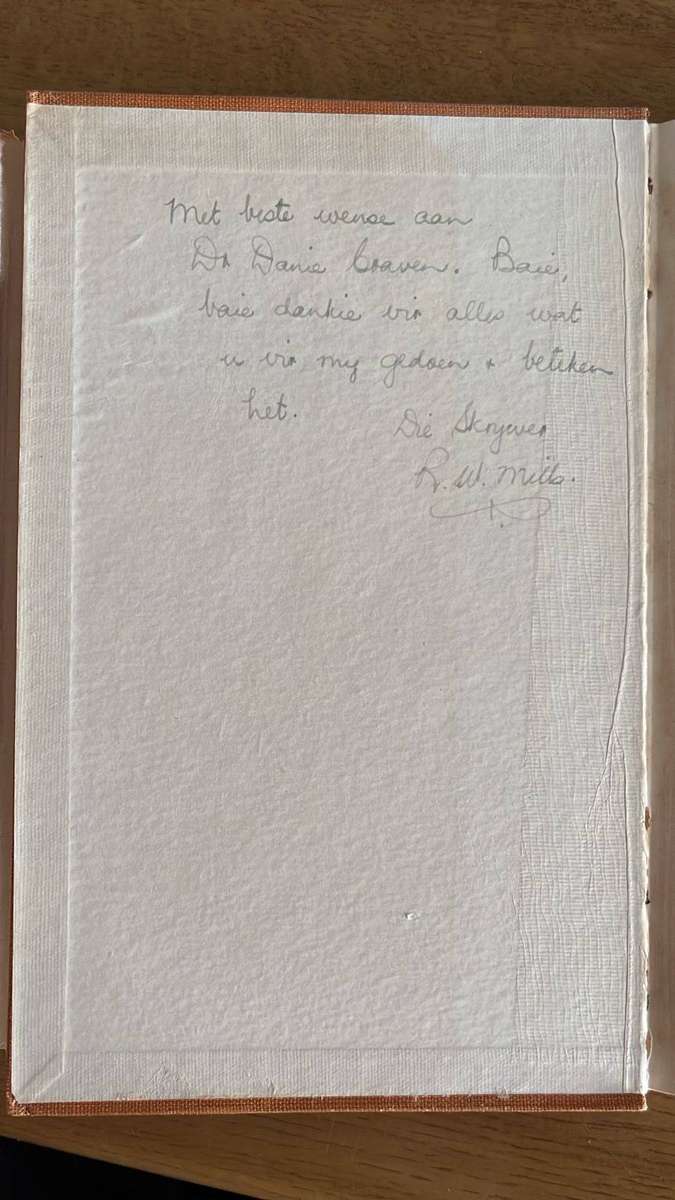 Met beste wense aan
Dr Danie Craven. Baie,
baie dankie vir alles wat
u vir my gedoen + beteken
het.
Die Skrywer
R. W. Mills.